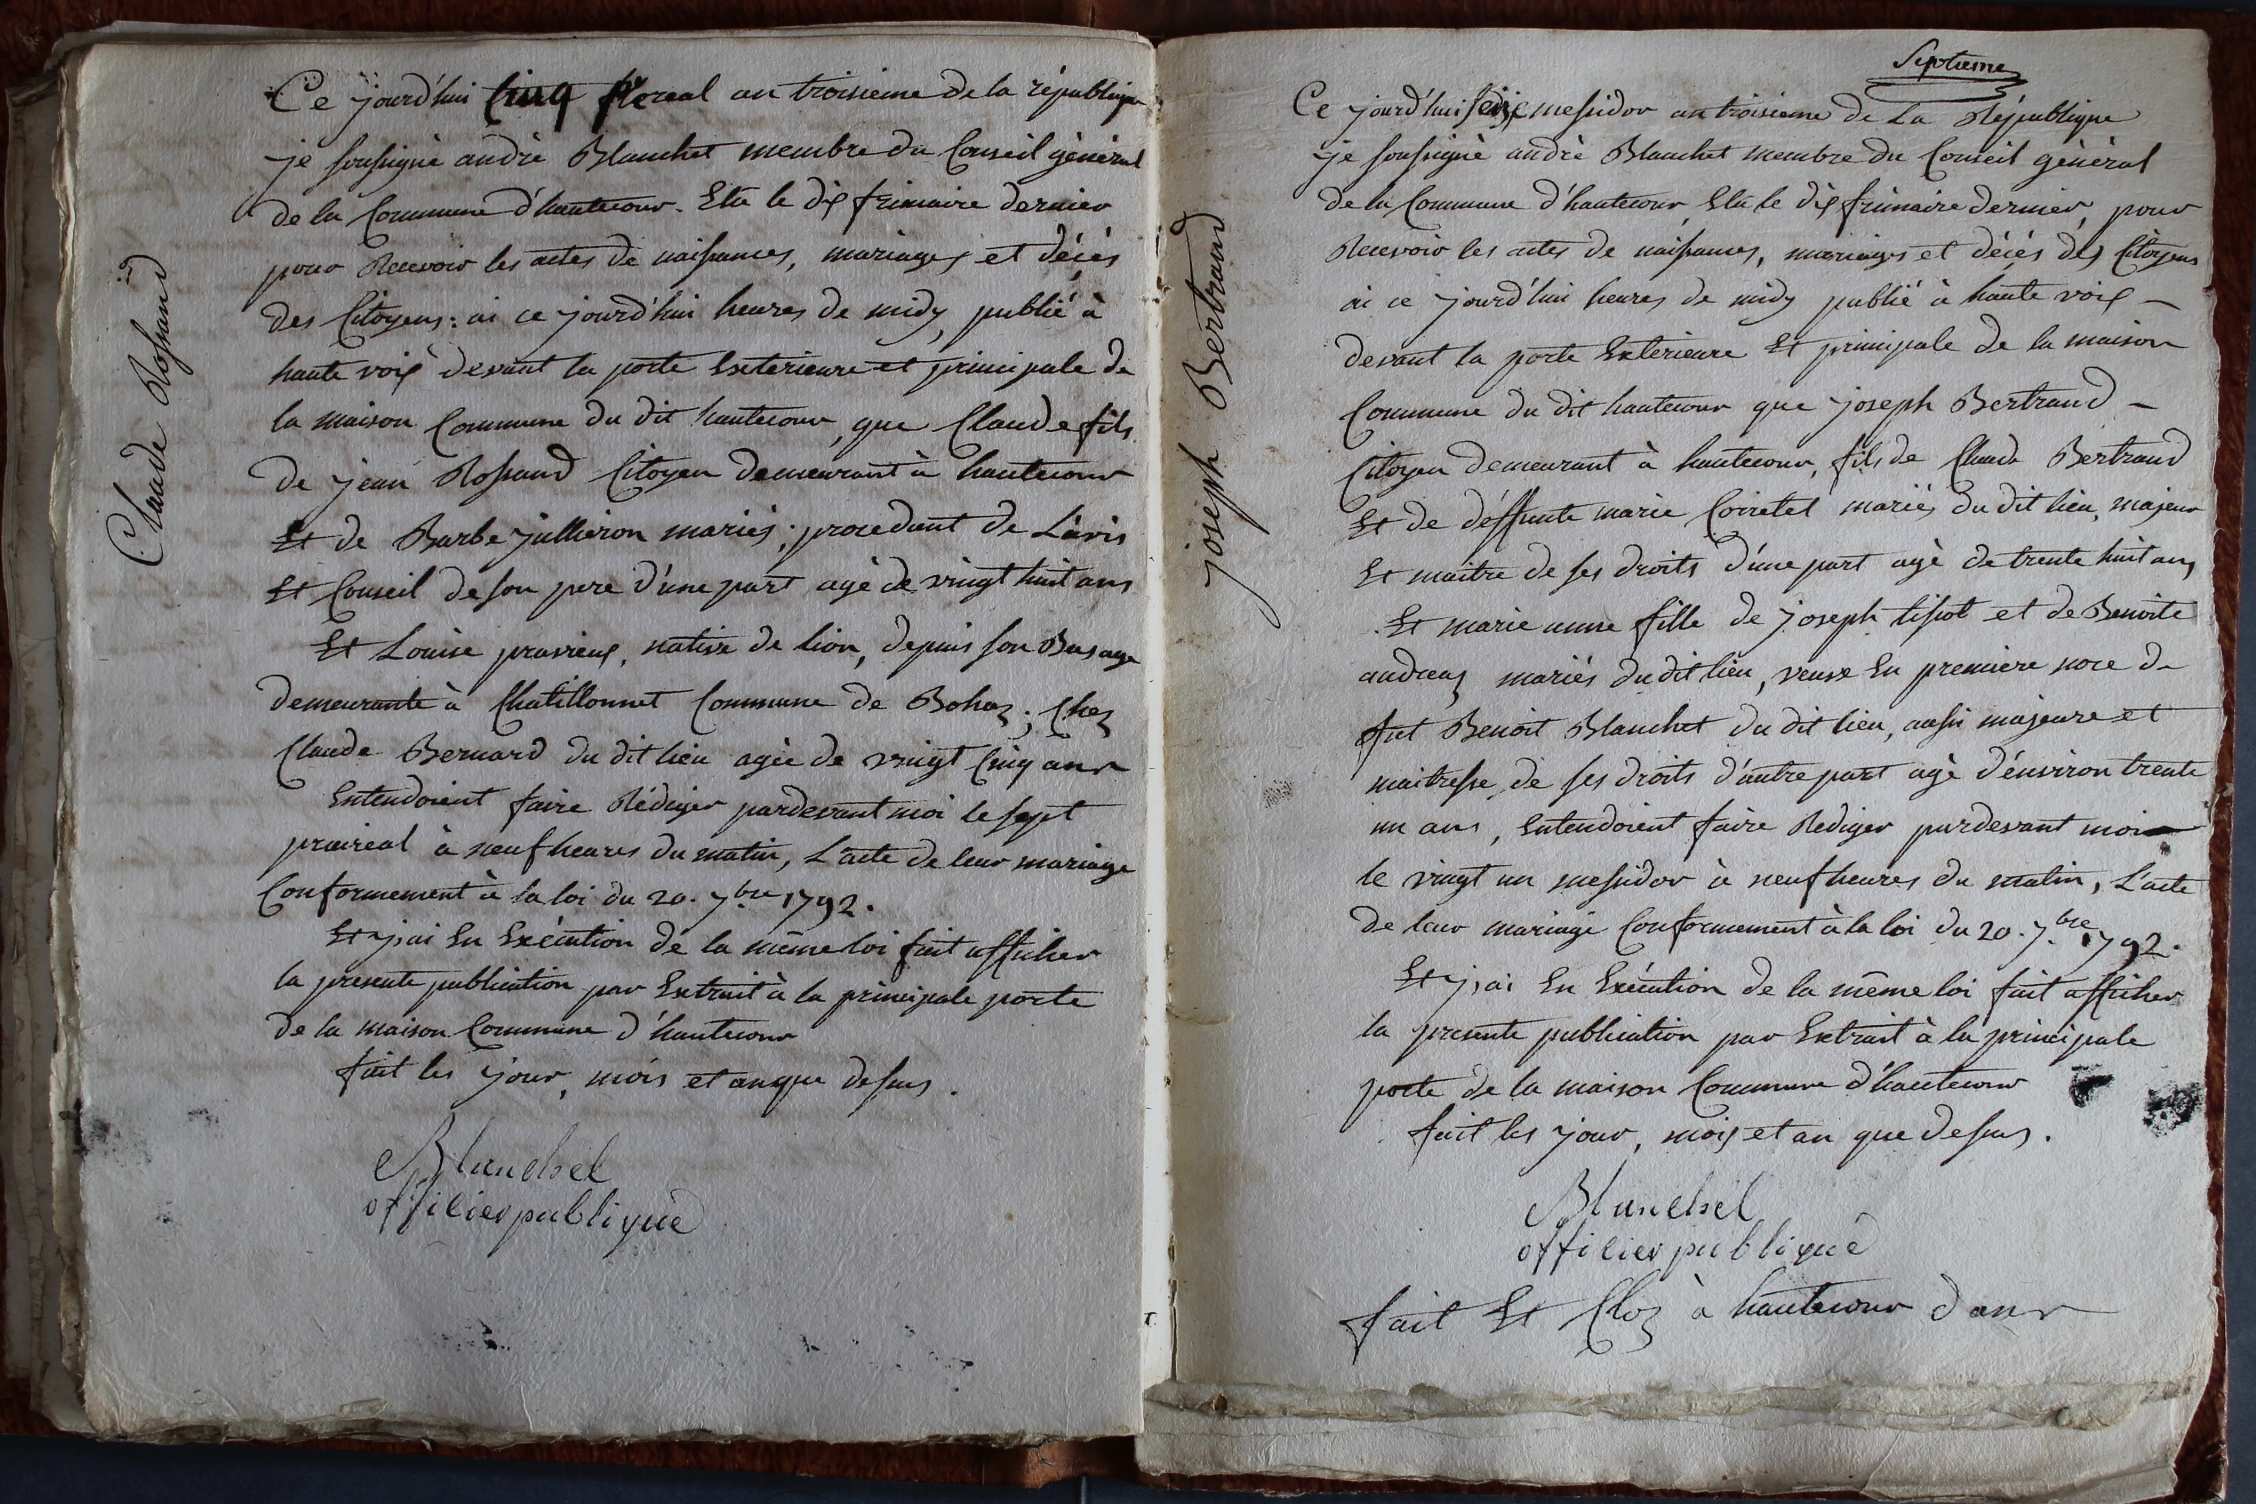 Claude Rossand
Ce jourd'hui Cinq floreal an troisieme de la république
je soussigné andré Blanchet membre du Conseil général
de la Commune d'hautecour. Elu le dix frimaire dernier
pour Recevoir les actes de naissances, mariages et décés
des Citoyens : ai ce jourd'hui heures de midy publié à
haute voix devant la porte Exterieure et principale de
la maison Commune du dit hautecour, que Claude fils
de jean Rossand Citoyen demeurant à hautecour
Et de Barbe jullieron mariés ; procedant de L'avis
Et Conseil de son pere d'une part agé de vingt huit ans
Et Louise pravieux, native de lion, depuis son Bas age
demeurante à Chatillonnet Commune de Bohaz ; Chez
Claude Bernard du dit lieu agée de vingt Cinq ans
Entendoient faire Rédiger pardevant moi le sept
prairéal à neuf heures du matin, L'acte de leur mariage
Conformement à la loi du 20. 7bre 1792.
Et j'ai En Exécution de la même loi fait afficher
la presente publication par Extrait à la principale porte
de la maison Commune d'hautecour
fait les jour, mois et an que dessus.
Blanchet
offilier publique
Septieme
joseph Bertrand
Ce jourd'hui seize messidor an troisieme de La République
je soussigné andré Blanchet membre du Conseil général
de la Commune d'hautecour, Elu le dix frimaire dernier, pour
Recevoir les actes de naissances, mariages et décés des Citoyens
ai ce jourd'hui heures de midy publié à haute voix –
devant la porte Exterieure Et principale de la maison
Commune du dit hautecour que joseph Bertrand –
Citoyen demeurant à hautecour, fils de Claude Bertrand
Et de déffunte marie Coiretet mariés du dit lieu, majeur
Et maitre de ses droits d'une part agé de trente huit ans
Et marie anne fille de joseph tissot et de Benoite
mariés du dit lieu, veuve En premiere noce de
fut Benoit Blanchet du dit lieu, aussi majeure et
maitresse de ses droits d'autre part agé d'énviron trente
un ans, Entendoient faire Rediger pardevant moi
le vingt un messidor à neuf heures du matin, L'acte
de leur mariage Conformement à la loi du 20. 7bre 1792.
Et j'ai En Exécution de la même loi fait afficher
la presente publication par Extrait à la principale
porte de la maison Commune d'hautecour
fait les jour, mois et an que dessus.
Blanchet
offilier publique
fait Et Cloz à hautecour dans